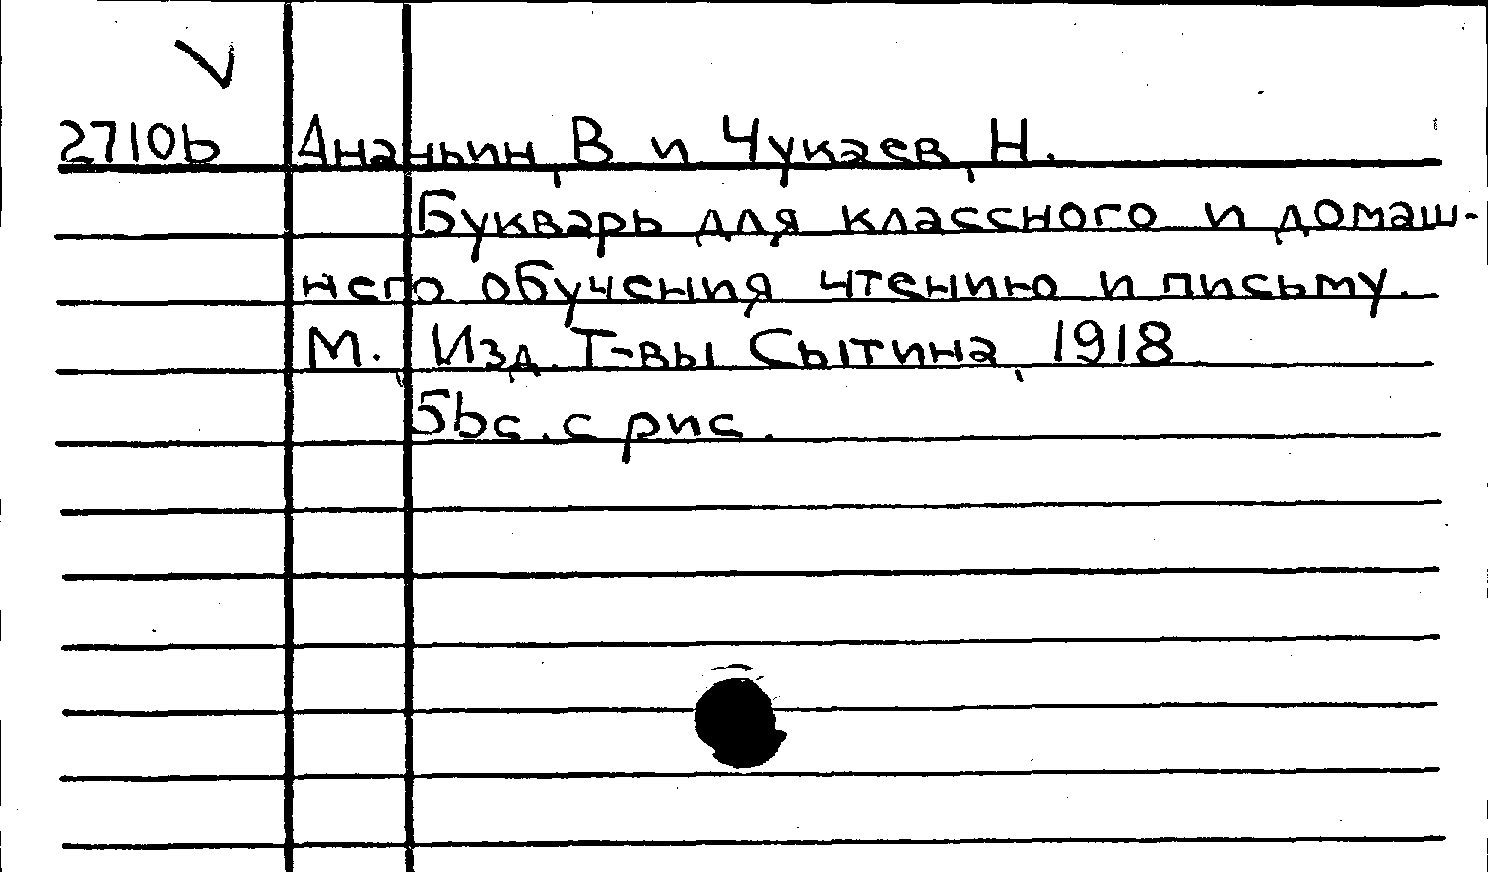 27106 Ананьин, В и Чукаев, Н.
Букварь для классного и домаш-
него обучения чтению и письму.
М., Изд. Т-вы Сытина, 1918
56с. с рис.